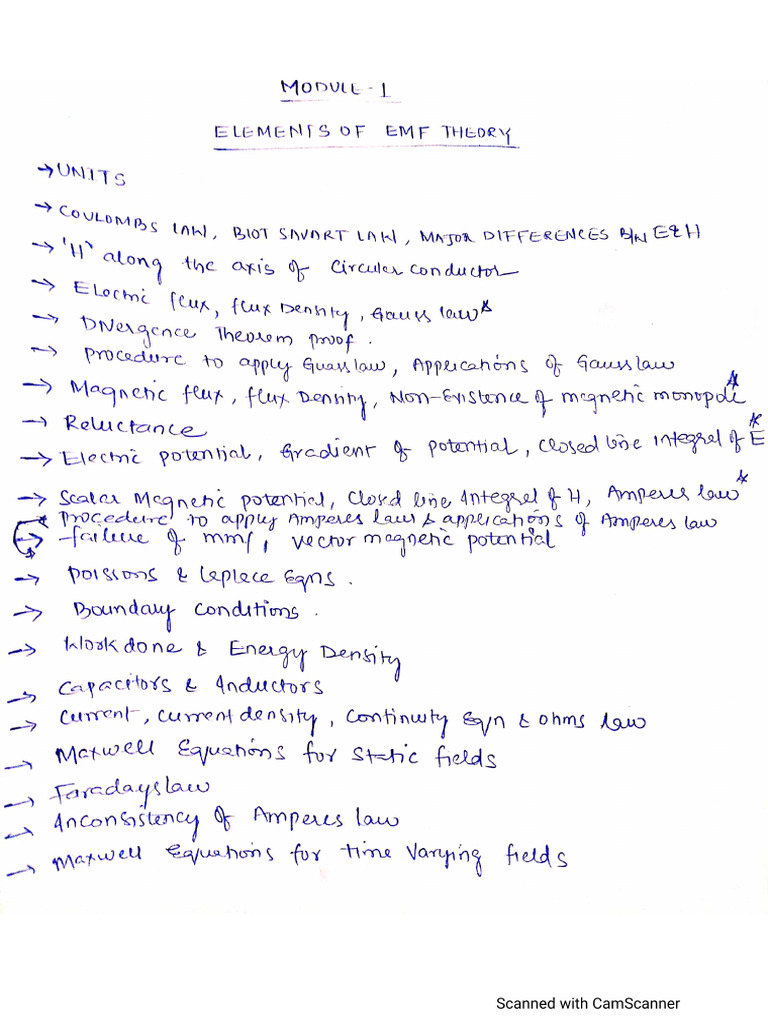 MODULE-1
ELEMENTS OF EMF THEORY
→ UNITS
→ COULOMBS LAW, BIOT SAVART LAW, MAJOR DIFFERENCES B/N E&H
→ 'H' along the axis of Circular conductor
→ Electric flux, flux Density, Gauss law*
→ Divergence Theorem proof.
→ procedure to apply Guass law, Applications of Gauss law
→ Magnetic flux, flux Density, Non-Existence of magnetic monopole*
→ Reluctance
→ Electric potential, Gradient of potential, closed line integral of E*
→ Scalar Magnetic potential, closed line Integral of H, Amperes law*
* procedure to apply Amperes law & applications of Amperes law
→ failure of mmf, vector magnetic potential
→ poissons & Laplace Eqns.
→ Boundary conditions.
→ Work done & Energy Density
→ Capacitors & Inductors
→ Current, current density, Continuity Eqn & ohms law
→ Maxwell Equations for static fields
→ Faradays law
→ Inconsistency of Amperes law
→ Maxwell Equations for time Varying fields
Scanned with CamScanner